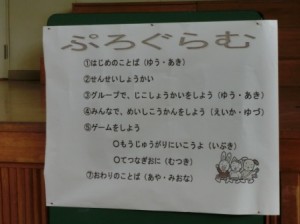 ぷろぐらむ
①はじめのことば(ゆう・あき)
②せんせいしょうかい
③グループで、じこしょうかいをしよう(ゆう・あき)
④みんなで、めいしこうかんをしよう(えいか・ゆづ)
⑤ゲームをしよう
○もうじゅうがりにいこうよ(いぶき)
○てつなぎおに(むつき)
⑦おわりのことば(あや・みおな)